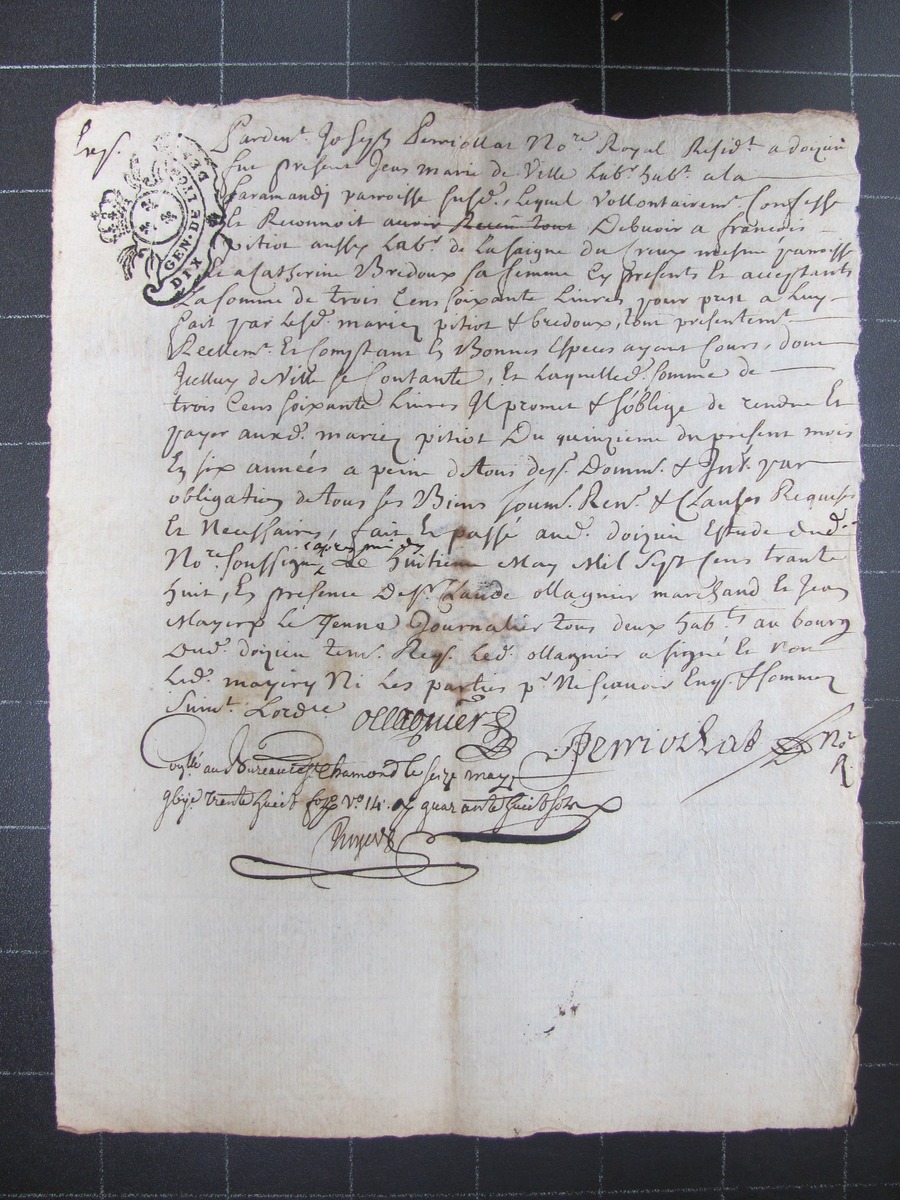 Exp.
Pardevt. Joseph Perriollat Nore Royal Residt. a doizieu
fut present Jean marie de Ville Labr. habt. a la
paramandj parroisse susd., Lequel Vollontairemt. Confesse
Et Reconnoit avoir Receu tout Debvoir a francois
pitiot aussy Labr. de La saigne du Creux mesme parroisse
Et a Catherine Bredoux sa femme Ey presents Et acceptants
La somme de trois Cens soixante Livres pour prest a Luy
fait par Lesd. mariez pitiot & bredoux, tout presentemt.
Reellemt. Et Comptant En Bonnes Especes ayant Cours, dont
Jcelluy de Ville se Contante, Et Laquelled. somme de
trois Cens soixante Livres Jl promet & soblige de rendre Et
payer auxd. mariez pitiot Du quinzieme du present mois
En six années a peine de tous desp. Domm. & Jnt. par
obligation de tous ses Biens soum. Ren. & Clauses Requises
Et Necessaires, fait Et passé aud. doizieu Estude dud.
Nore. soussigné apres midy
Le huitieme May Mil Sept Cens trante
huit, En presence De Sr. Claude ollagnier marchand Et Jean
Mayery Le Jeune Journalier tous deux habts. au bourg
Dud. doizieu tem. Reqs. Led. ollagnier a signé Et non
Led. mayery Ni Les parties pr. Ne scavoir Enqs. & sommez
Suivt. Lordre
ollagnier
Perriollat Nore
R.
Controllé au Bureau de St. Chamond le seize may
trente huict fo. Vo. 14. quarante huict sols
GEN. DE LION
DIX